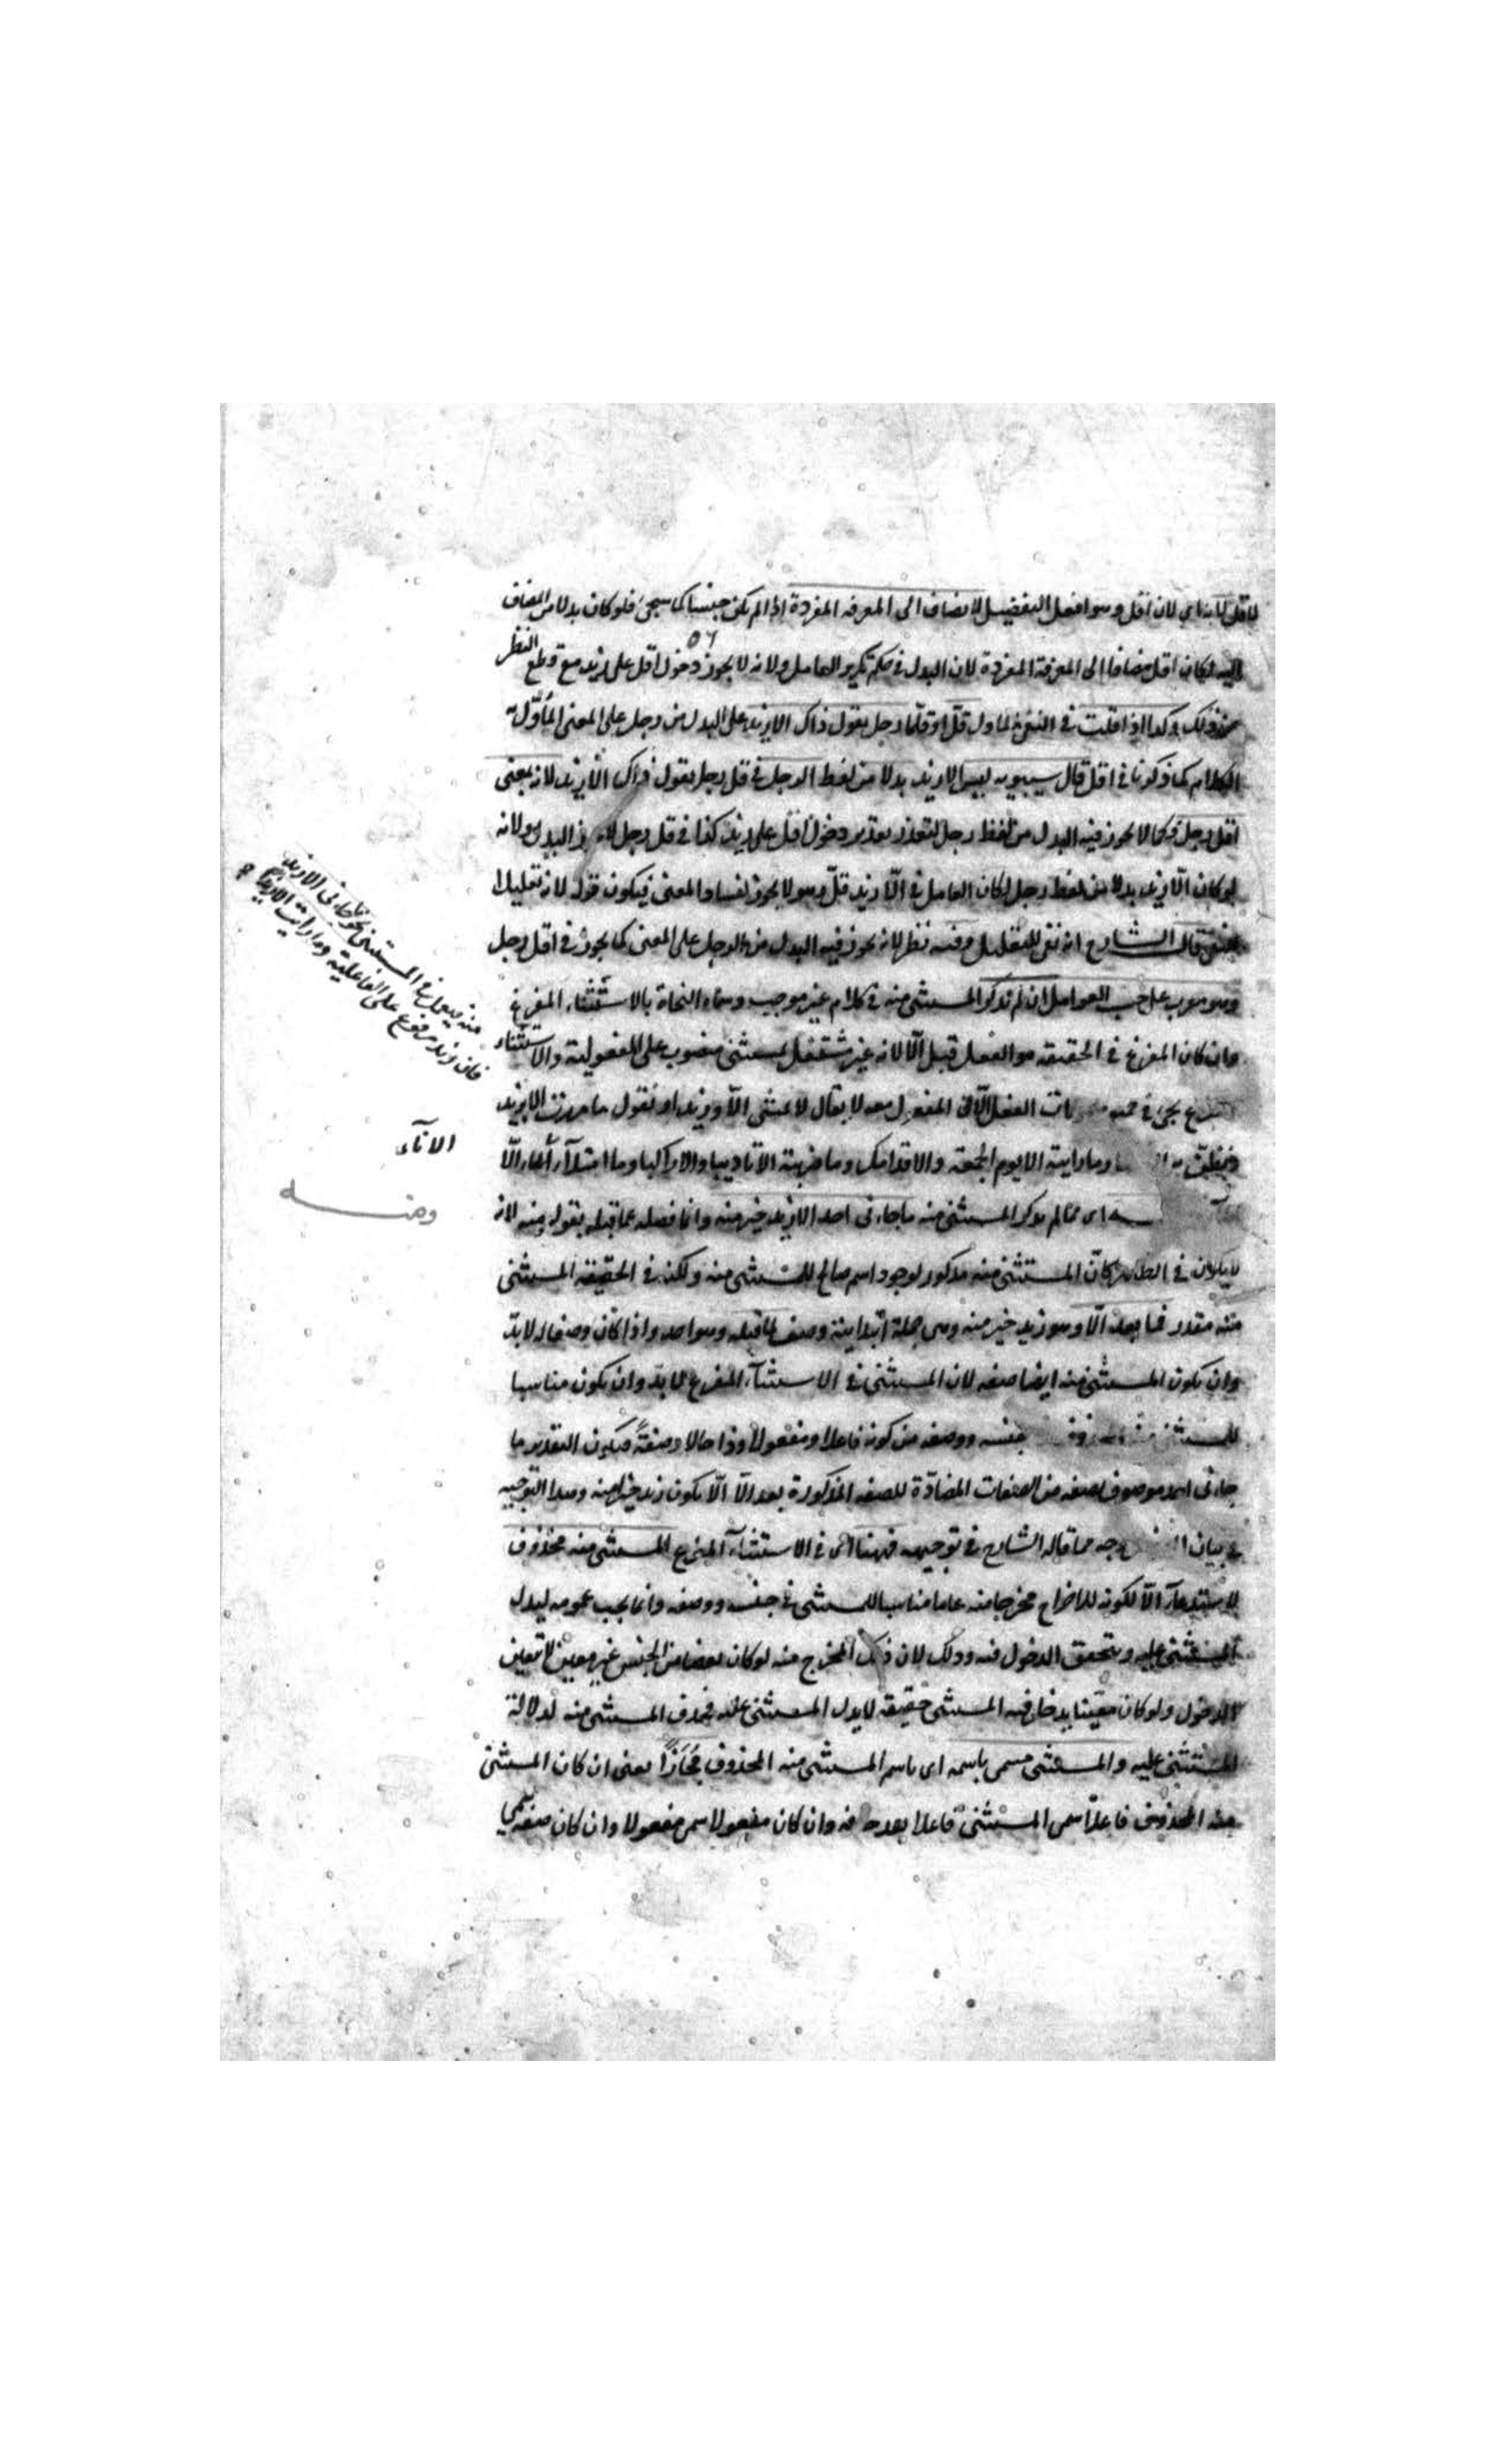 لما قلنا اي لان اقل وهو افعل التفضيل لا يضاف الى المعرفه المفردة اذا لم يكن جنسا كما سيجئ فلو كان بدلا من المضاف
اليه لكان اقل مضافا الى المعرفة المفردة لان البدل في حكم تكرير العامل ولانه لا يجوز دخول اقل على زيد مع قطع النظر
عن ذلك وكذا اذا قلت في النفي لما ول قلّ او قلّما رجل يقول ذاك الا زيد على البدل من رجل على المعنى المأوّل
الكلام كما ذكرنا في اقل قال سيبويه ليس الا زيد بدلا من لفظ الرجل في قل رجل يقول ذاك الّا زيد لانه بمعنى
اقل رجل فكما لا يجوز فيه البدل من لفظ رجل لتعذر تقدير دخول اقل على زيد كذا في قل رجل البدل ولانه
لو كان الّا زيد بدلا من لفظ رجل لكان العامل في الّا زيد قلّ وهو لا يجوز لفساد المعنى فيكون قوله لانه تعليلا
قال الشارح انه نفى للتقليل وفيه نظر لانه يجوز فيه البدل من الرجل على المعنى كما يجوز في اقل رجل
وهو معرب على حسب العوامل ان لم تذكر المستثنى منه في كلام غير موجب وسماه النحاة بالاستثناء المفرغ
وان كان المفرغ في الحقيقه هو الفعل قبل الّا لانه غير مشتغل بمستثنى منصوب على المفعولية والاستثناء
يجئ في جميع الفعل الّا في المفعول معه لا يقال لا تمشى الّا وزيد او نقول ما مررت الا بزيد
وما رايته الا يوم الجمعة والا قدامك وما ضربته الا تاديبا والا راكبا وما امتلأ الّا
اى مما لم يذكر المستثنى منه ما جاءنى احد الا زيد خير منه وانما فصله عما قبله بقوله ومنه لانه
لا يكون في الظاهر كانّ المستثنى منه مذكور لوجود اسم صالح للمستثنى منه ولكن في الحقيقه المستثنى
منه مقدر فما بعد الّا وهو زيد خير منه وهى جملة ابتدايئة وصف لما قبله وهو احد واذا كان وصفا له لا بدّ
وان يكون المستثنى منه ايضا صفه لان المستثنى في الاستثناء المفرغ لا بد وان يكون مناسبا
للمستثنى منه جنسه ووصفه من كونه فاعلا ومفعولا وذا حال وصفةً فيكون التقدير ما
جاءنى احد موصوف بصفه من الصفات المضادّة للصفه المذكورة بعد الّا الّا يكون زيد خيرا منه وهذا التوجيه
بيان مما قاله الشارح في توجيهه فههنا اى في الاستثناء المفرغ المستثنى منه محذوف
لاستدعاء الّا لكونه للاخراج مخرجا منه عاما مناسبا للمستثنى في جنسه ووصفه وانما يجب عمومه ليدل
المستثنى عليه ويتحقق الدخول فيه وذلك لان ذلك المخرج منه لو كان بعضا من الجنس غير معين لا تعين
الدخول ولو كان معيّنا يدخل فيه المستثنى حقيقة لا يدل المستثنى عليه فحذف المستثنى منه لدلالة
المستثنى عليه والمستثنى مسمى باسمه اى باسم المستثنى منه المحذوف مَجَازًا يعنى ان كان المستثنى
منه المحذوف فاعلا سمى المستثنى فاعلا بعد حذفه وان كان مفعولا سمى مفعولا وان كان صفه سمى
منه ويعمل في المستثنى نحو ما جاءنى الا زيد
فان زيد مرفوع على الفاعلية وما رايت الا زيدا
الا ناء
ومنه